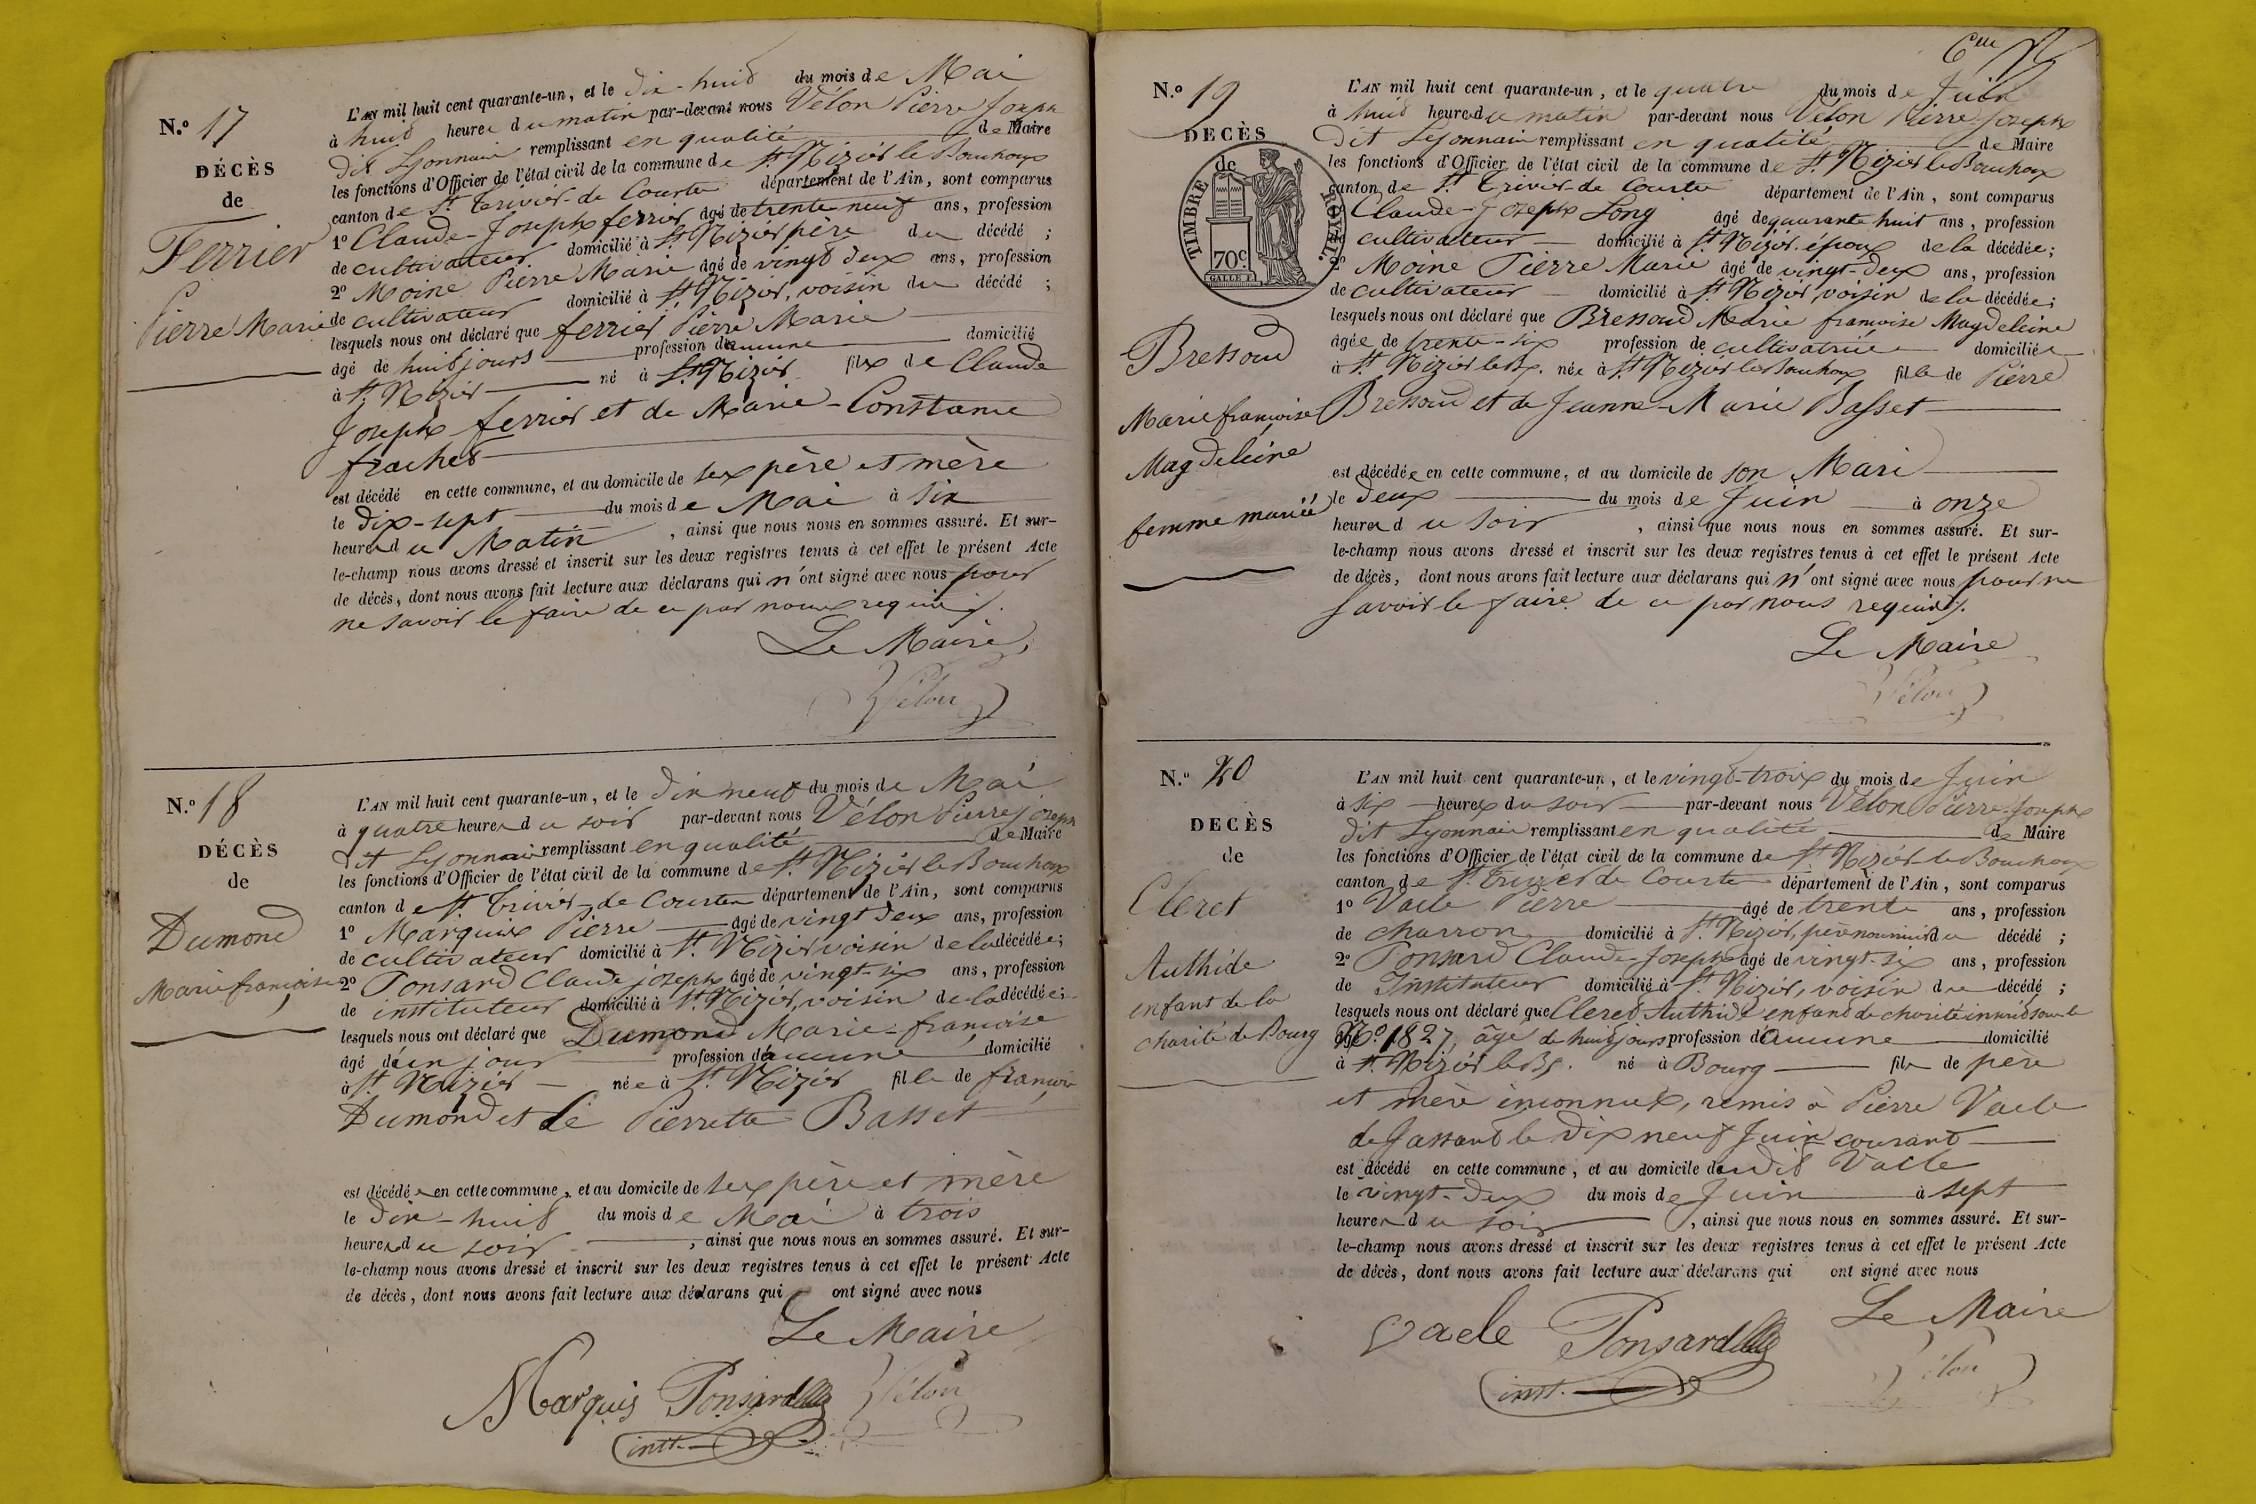 N.o 17
DÉCÈS
de
Ferrier
Pierre Marie
L'AN mil huit cent quarante-un, et le dix-huit du mois de Mai
à huit heures du matin par-devant nous Vélon Pierre Joseph
dit Lyonnais remplissant en qualité de Maire
les fonctions d'Officier de l'état civil de la commune de St Nizier le Bouchoux
canton de St Trivier-de Courtes département de l'Ain, sont comparus
1o Claude-Joseph ferrier âgé de trente neuf ans, profession
de cultivateur domicilié à St Nizier père du décédé ;
2o Moine Pierre Marie âgé de vingt deux ans, profession
de cultivateur domicilié à St Nizier, voisin du décédé ;
lesquels nous ont déclaré que ferrier Pierre Marie
âgé de huit jours profession d'aucune domicilié
à St Nizier né à St Nizier fils de Claude
Joseph ferrier et de Marie-Constance
frachet
est décédé en cette commune, et au domicile de ses père et mère
le dix-sept du mois de Mai à six
heures du Matin, ainsi que nous nous en sommes assuré. Et sur-
le-champ nous avons dressé et inscrit sur les deux registres tenus à cet effet le présent Acte
de décès, dont nous avons fait lecture aux déclarans qui n'ont signé avec nous pour
ne savoir le faire de ce par nous requis.
Le Maire
Vélon
N.o 18
DÉCÈS
de
Dumond
Marie françoise
L'AN mil huit cent quarante-un, et le dix neuf du mois de Mai
à quatre heures du soir par-devant nous Vélon Pierre Joseph
dit Lyonnais remplissant en qualité de Maire
les fonctions d'Officier de l'état civil de la commune de St Nizier le Bouchoux
canton de St Trivier-de Courtes département de l'Ain, sont comparus
1o Marquis Pierre âgé de vingt deux ans, profession
de cultivateur domicilié à St Nizier voisin de la décédée;
2o Ponsard Claude joseph âgé de vingt-six ans, profession
de instituteur domicilié à St Nizier, voisin de la décédée;
lesquels nous ont déclaré que Dumond Marie-françoise
âgé d'un jour profession d'aucune domicilié
à St Nizier née à St Nizier fille de françois
Dumond et de Pierrette Basset
est décédée en cette commune, et au domicile de ses père et mère
le dix-huit du mois de Mai à trois
heures du soir, ainsi que nous nous en sommes assuré. Et sur-
le-champ nous avons dressé et inscrit sur les deux registres tenus à cet effet le présent Acte
de décès, dont nous avons fait lecture aux déclarans qui ont signé avec nous
Le Maire
Marquis Ponsard Vélon
inst.
6me
N.o 19
DECÈS
de
TIMBRE ROYAL
70c
GALLE F.
Bressoud
Marie françoise
Magdeleine
femme mariée
L'AN mil huit cent quarante-un, et le quatre du mois de Juin
à huit heures du matin par-devant nous Vélon Pierre-Joseph
dit Lyonnais remplissant en qualité de Maire
les fonctions d'Officier de l'état civil de la commune de St Nizier le Bouchoux
canton de St Trivier-de Courtes département de l'Ain, sont comparus
Claude-Joseph Long âgé de quarante huit ans, profession
cultivateur domicilié à St Nizier époux de la décédée;
2o Moine Pierre Marie âgé de vingt-deux ans, profession
de cultivateur domicilié à St Nizier, voisin de la décédée;
lesquels nous ont déclaré que Bressoud Marie françoise Magdeleine
âgée de trente-six profession de cultivatrice domiciliée
à St Nizier le Bx. née à St Nizier le Bouchoux fille de Pierre
Bressoud et de Jeanne-Marie Basset
est décédée en cette commune, et au domicile de son Mari
le deux du mois de Juin à onze
heures du soir, ainsi que nous nous en sommes assuré. Et sur-
le-champ nous avons dressé et inscrit sur les deux registres tenus à cet effet le présent Acte
de décès, dont nous avons fait lecture aux déclarans qui n'ont signé avec nous pour ne
savoir le faire de ce par nous requis.
Le Maire
Vélon
N.o 20
DECÈS
de
Cleret
Authide
enfant de la
charité de Bourg
L'AN mil huit cent quarante-un, et le vingt-trois du mois de Juin
à six heures du soir par-devant nous Vélon Pierre-Joseph
dit Lyonnais remplissant en qualité de Maire
les fonctions d'Officier de l'état civil de la commune de St Nizier le Bouchoux
canton de St Trivier de Courtes département de l'Ain, sont comparus
1o Vacle Pierre âgé de trente ans, profession
de charron domicilié à St Nizier, père nourricier du décédé ;
2o Ponsard Claude-Joseph âgé de vingt-six ans, profession
de Instituteur domicilié à St Nizier, voisin du décédé ;
lesquels nous ont déclaré que Cleret Authide enfant de charité inscrit sous le
No 1827, âgé de huit jours profession d'aucune domicilié
à St Nizier le Bx. né à Bourg fils de père
et mère inconnus, remis à Pierre Vacle
de Jassans le dix neuf Juin courant
est décédé en cette commune, et au domicile dudit Vacle
le vingt-deux du mois de Juin à sept
heures du soir, ainsi que nous nous en sommes assuré. Et sur-
le-champ nous avons dressé et inscrit sur les deux registres tenus à cet effet le présent Acte
de décès, dont nous avons fait lecture aux déclarans qui ont signé avec nous
Le Maire
Vacle Ponsard Vélon
inst.